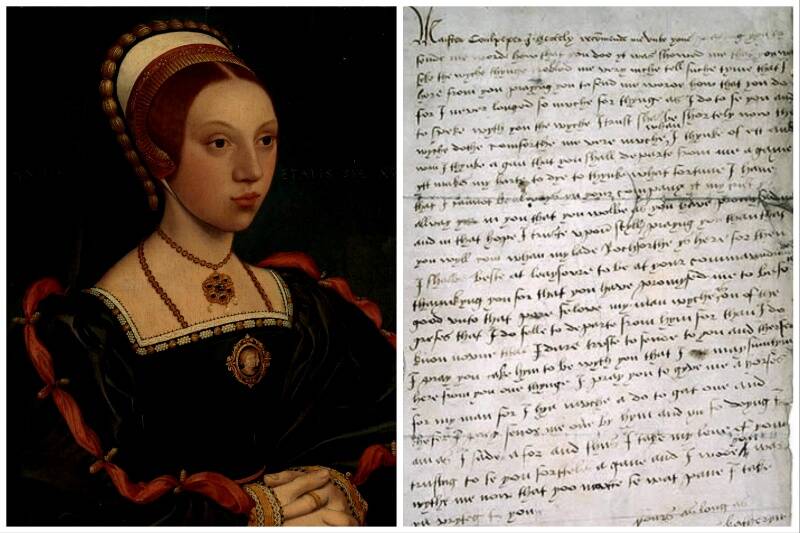 ETATIS
Maister Coulpeper I hertely recomende me unto youe praying you to
sende me worde how that you doo yt was showed me that you was
sike the wyche thynge trobled me very muche tell suche tyme that I
here from you praying you to send me worde how that you do
for I never longed so muche for thynge as I do to se you and
to speke wyth you the wyche I trust shal be shortely now the
wyche dothe comforthe me verie muche whan I thynke of ett and
wan I thynke a gan that you shall departe from me a gane
ytt makes my harte to dye to thynke what fortune I have
that I cannot be always yn your company yt my trust ys
allway yn in you that you wolbe as you have promysed me
and in that hope I truste upon styll praying you than that
you wyll com whan my lade Rochforthe ys here for then
I shalbe beste at leaysoure to be at your commaundment
thanking you for that you have promised me to be so
good unto that pore felowe my man wyche ys on of the
grefes that I do felle to departe from hym for than I do
know noone that I dare truste to sende to you and therfor
I pray you take hym to be wyth you that I may sumtym
here from you one thynge I pray you to gyve me a horse
for my man for I hyd muche a do to gat one and
therfor I pray sende me one by hym and yn so doying I
am as I sade afor and thus I take my leve of you
trusting to se you shortele a gane and I wode you was
wythe me now that yoo maitte se wat pane I take
yn wryteg to you
yours as long as